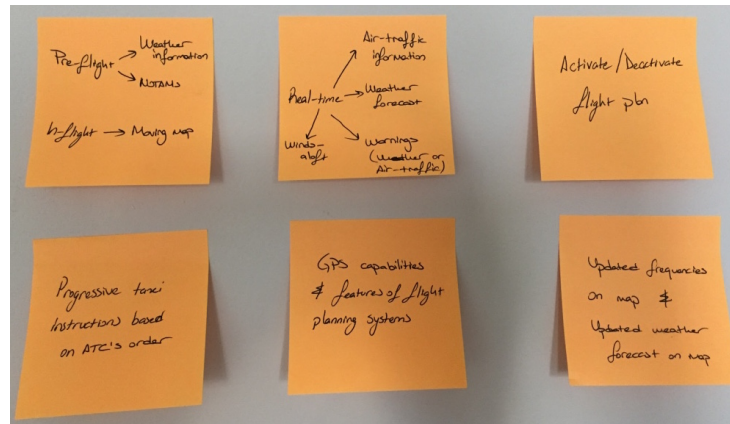 Pre-flight → Weather information
→ NOTAMs
In-flight → Moving map
Air-traffic
information
Real-time → Weather
forecast
Winds-
aloft
Warnings
(Weather or
Air-traffic)
Activate/Deactivate
flight plan
Progressive taxi
instructions based
on ATC's order
GPS capabilities
& features of flight
planning systems
Updated frequencies
on map &
Updated weather
forecast on map